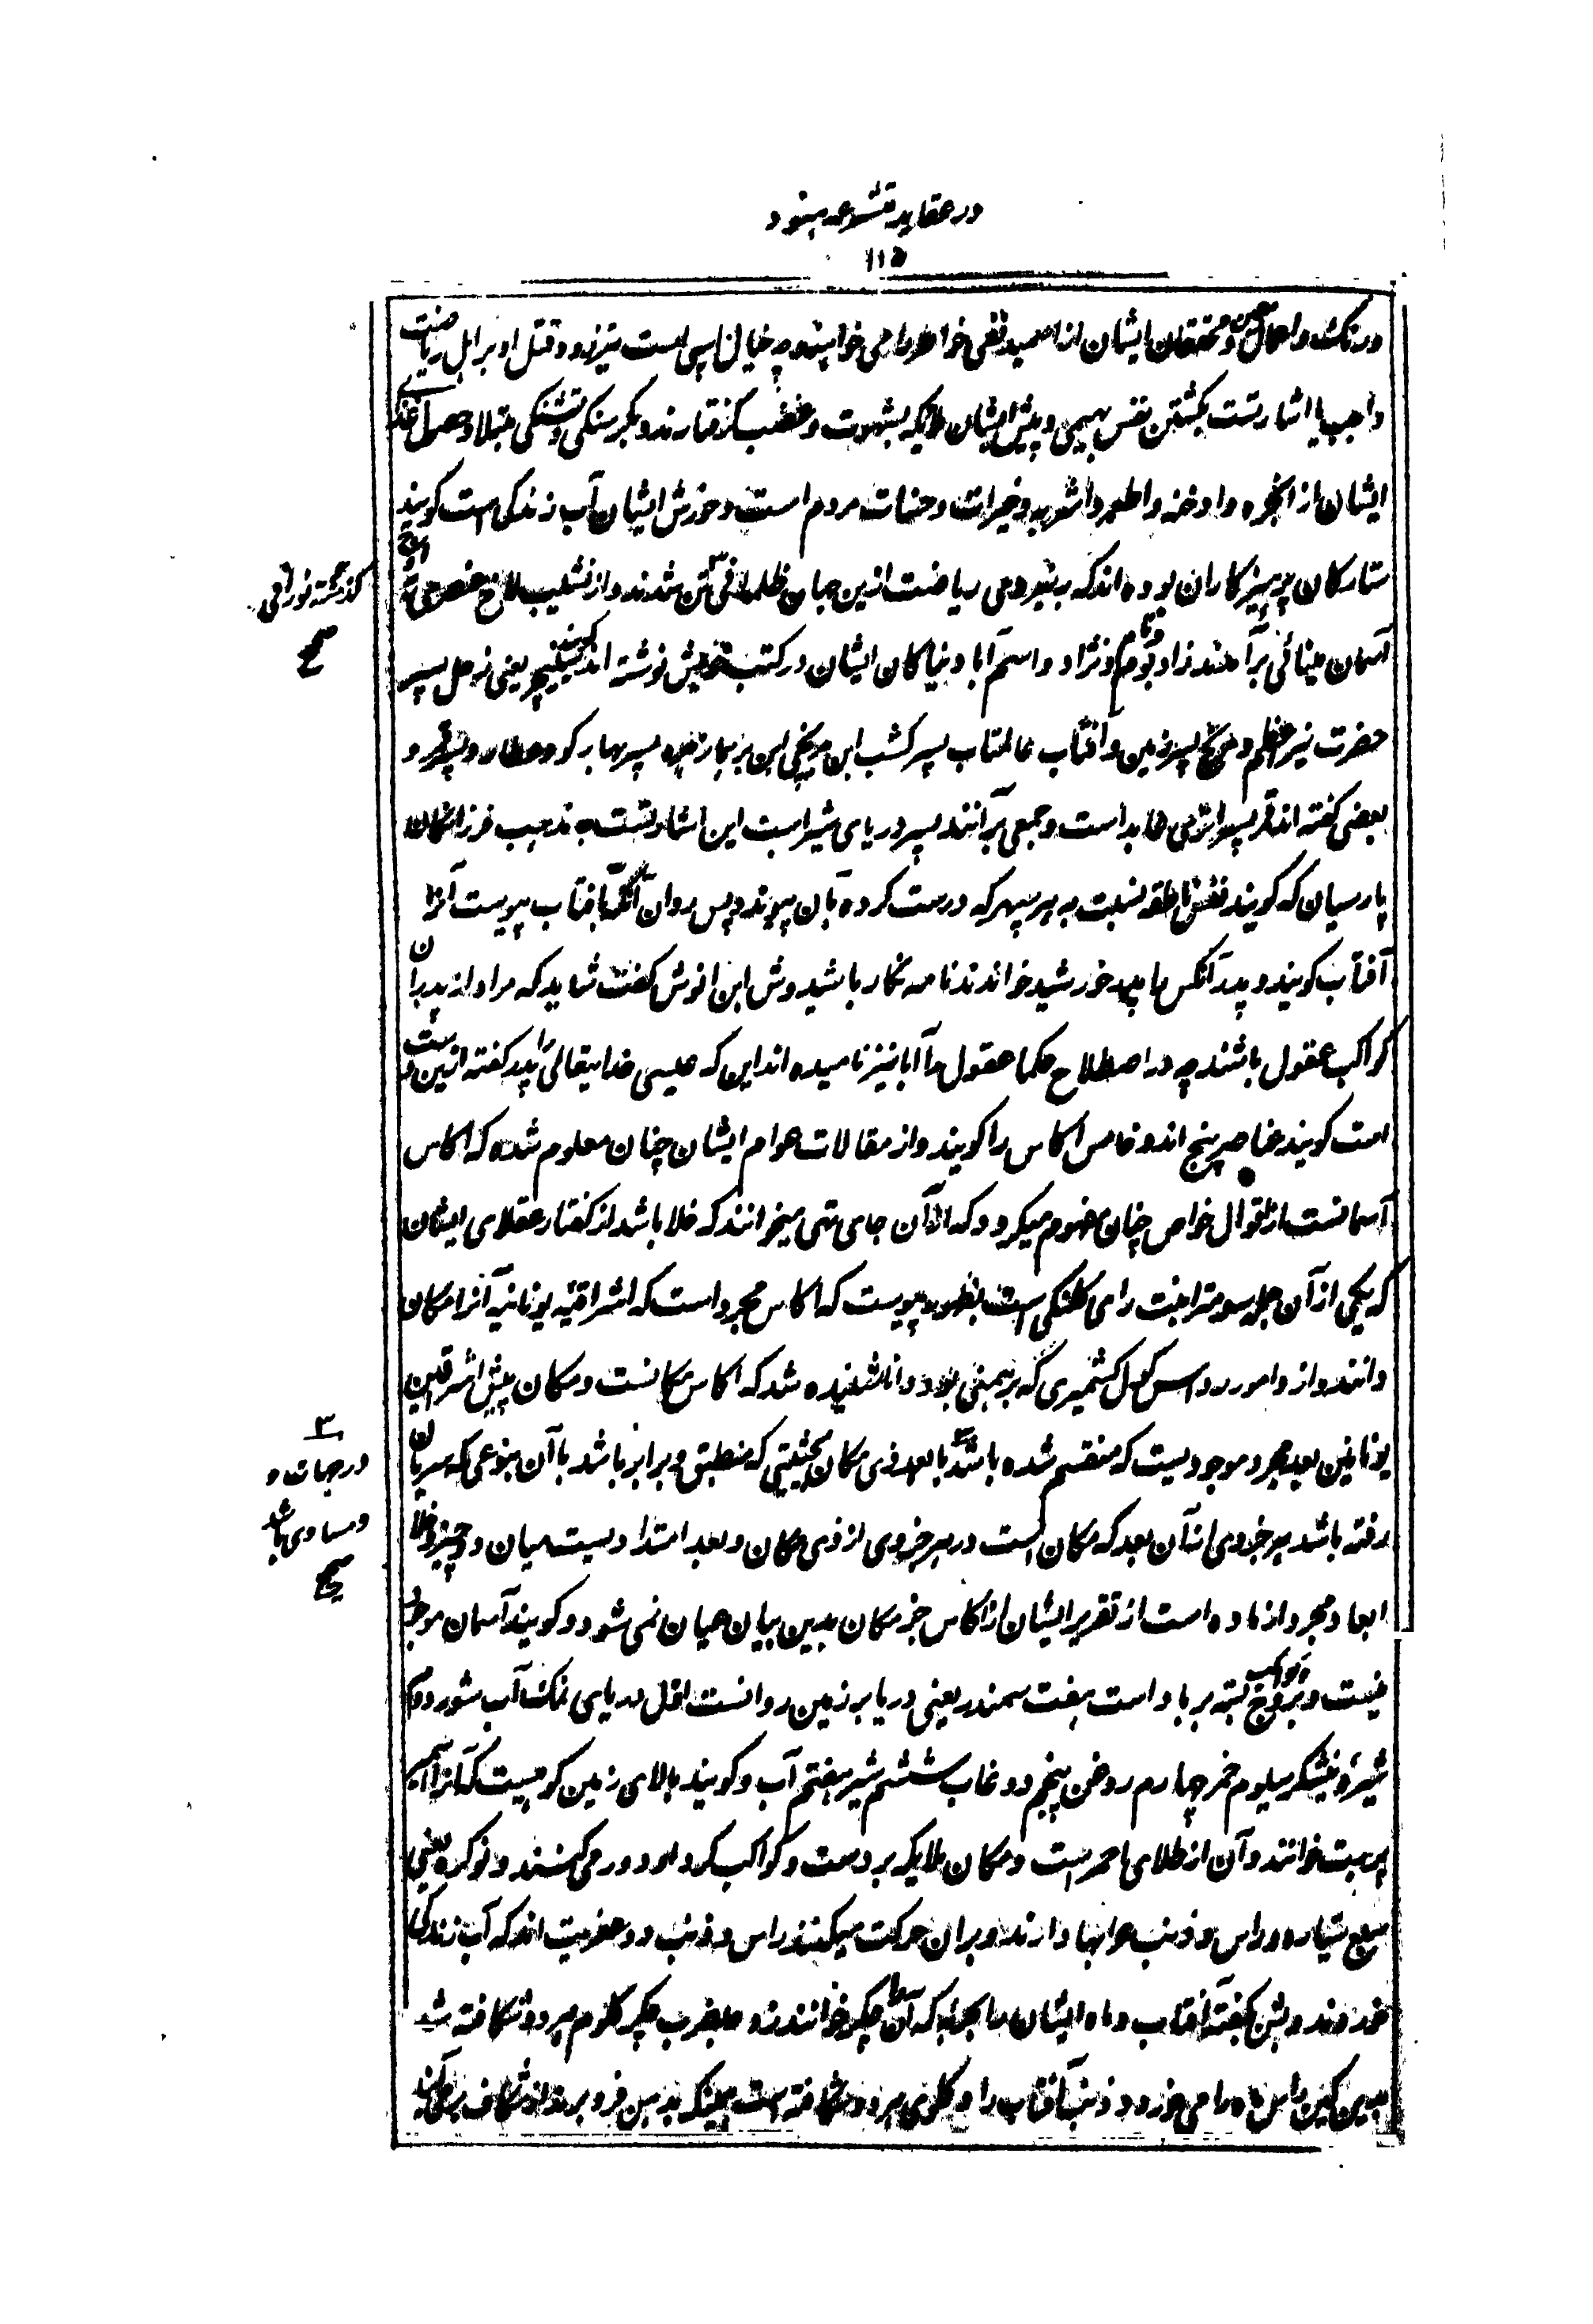 در عقاید متشرعه هنود
۱۱۵
درنگ و اهمال و محققان ایشان از اسمید نفی خواطر را می خواهند چه خیال اسپی است تیزرو و قتل او بر اهل ریاضت
واجب یا اشارتست بکشتن نفس بهیمی و پیش ایشان ملایکه بشهوت و غضب گرفتارند و بگرسنگی و تشنگی مبتلا و حصول غذای
ایشان از ابخره و ادخنه و اطعمه و اشربه و خیرات و حسنات مردم است و خورش ایشان آب زندگی است گویند
ستارگان پرهیزکاران بوده اند که به نیروی ریاضت ازین جهان ظلمانی تن شدند و از نشیب عنصری باوج
گذشته نورانی
صح
آسمان مینائی برآمدند زاد و بوم و نام و نژاد و اسم آبا و نیاکان ایشان در کتب خویش نوشته اند گویند سنیچر یعنی زحل پسر
حضرت نیر اعظم و مریخ پسر زمین و آفتاب عالمتاب پسر کشب ابن مریچی ابن برهما زهره پسر بهارکو و عطارد پسر قمر و
بعضی گفته اند قمر پسر اتری عابد است و جمعی برآنند پسر دریای شیر است این اشارتست به مذهب فرزانگان
پارسیان که گویند نفس ناطقه نسبت به هر سپهر که درست کرده بآن پیوندد پس روان آنکس که بآفتاب پیوست آنرا
آفتاب گویند و پدر آنکس را پدر خورشید خوانند نامه نگار با شیدوش ابن انوش گفت شاید که مراد از پدران
کواکب عقول باشند چه در اصطلاح حکما عقول را آبا نیز نامیده اند این که عیسی خدایتعالی را پدر گفته ازین روست
است گویند عناصر پنج اند و خامس اکاس را گویند و از مقالات عوام ایشان چنان معلوم شده که اکاس
آسمانست از اقوال خواص چنان مفهوم میگردد که از آن جای تهی میخوانند که خلا باشد از گفتار عقلای ایشان
که یکی از آن جمله سومترا بنت رای کلنکی است بظهور پیوست که اکاس مجرد است که اشراقیه یونانیه آنرا مکان
دانند و از دامودر داس کول کشمیری که برهمنی بود دانا شنیده شد که اکاس مکانست و مکان پیش اشراقین
یونانین بعد مجرد موجودیست که منقسم شده باشد با بعد ذی مکان بحیثیتی که منطبق و برابر باشد با آن بنوعی که سریان
۳
در جهات و
و مساوی باشد
صح
رفته باشد هر جزوی از آن بعد که مکان است در هر جزوی از ذی مکان و بعد امتدادیست میان دو چیز و خلا
ابعاد مجرد از ماده است از تقریر ایشان از اکاس جز مکان بدین بیان عیان نمی شود و گویند آسمان موجود
نیست و کواکب و بروج بسته بر باد است هفت سمندر یعنی دریا بر زمین روانست اول دریای نمک آب شور دوم
شیرهٔ نیشکر سیوم خمر چهارم روغن پنجم دوغاب ششم شیر هفتم آب و گویند بالای زمین کوهیست که آنرا سمیر
پربت خوانند و آن از طلای احمر است و مکان ملایکه بر دست و کواکب گرد او دور می کنند و نوکره یعنی
سبع سیاره و راس و ذنب عرابها دارند و بران حرکت میکنند راس و ذنب دو عفریت اند که آب زندگی
خوردند و بشن بگفته آفتاب و ماه ایشان را بحربه که آن را چکر خوانند زد بضرب چکر گلوم هر دو شکافته شد
بدین کین راس ماه را می خورد و ذنب آفتاب را و گلوی هر دو شکافته است همینکه بدهن فرو برند از شکاف برمی آید